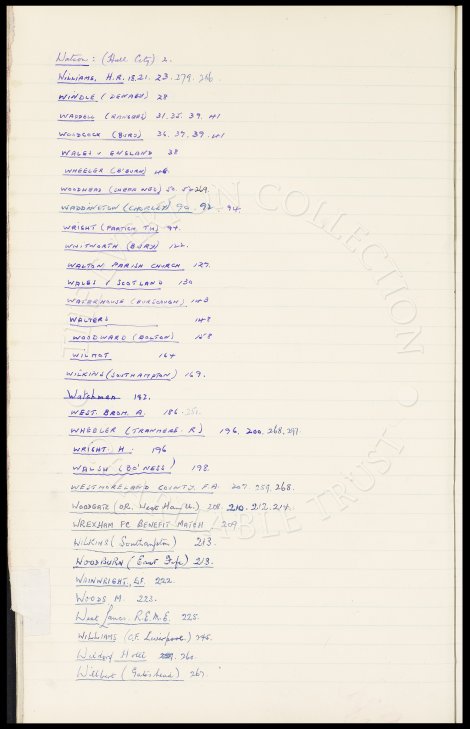 Watson : (Hull City) 2.
WILLIAMS, H.R. 18.21. 23. 279. 286.
WINDLE (DENABY) 28
WADDELL (RANGERS) 31. 35. 39. 41
WOODCOCK (BURY) 36. 37. 39. 41
WALES v ENGLAND 38
WHEELER (B'BURN) 46.
WOODHEAD (CHEAR NEG) 50. 54 269.
WADDINGTON (CHORLEY) 90. 92. 94.
WRIGHT (PARTICK TH) 94.
WHITWORTH (BURY) 122.
WALTON PARISH CHURCH 127.
WALES v SCOTLAND 130
WATERHOUSE (BURSCOUGH) 143
WALTERS 148
WOODWARD (BOLTON) 158
WILMOT 164
WILKINS (SOUTHAMPTON) 169.
Watchman 182.
WEST. BROM. A. 186. 251.
WHEELER (TRANMERE. R) 196. 200. 268. 297.
WRIGHT. H. 196
WALSH (BO'NESS) 198.
WESTMORELAND COUNTY. F.A. 207. 259. 268.
WOODGATE (DR. West Ham U.) 208. 210. 212. 214.
WREXHAM FC BENEFIT MATCH 209
WILKINS (Southampton) 213.
WOODBURN (East Fife) 213.
WAINWRIGHT, E.F. 222.
WOODS M. 223.
West Lancs. R.E.M.E. 225.
WILLIAMS (C.F. Liverpool) 245.
Hotel 260.
(Gateshead) 267
COLLECTION
TRUST